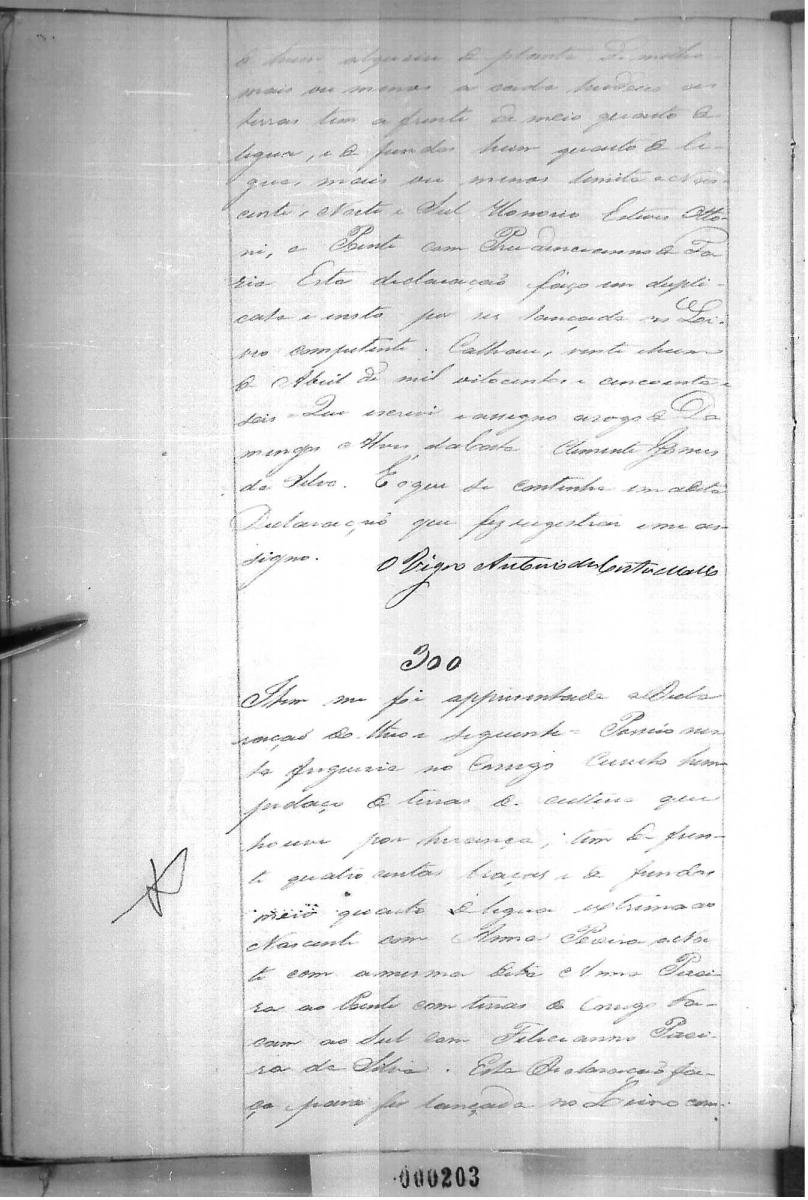 de hum alqueire de planta de milho
mais ou menos a cada hum deus as
terras tem a frente de meio quarto de
legua, e de fundos hum quarto de le-
gua, mais ou menos limita o Nas-
cente, Norte e Sul Honorio Esteves Otto-
ni, e Poente com Prudenciano de Fa
ria Esta declaração faço em dupli-
cata e insto por ser lançada no Li-
vro competente. Calhau, vinte e hum
de Abril de mil oitocentos e cincoenta e
seis = Que escrevi e assigno arogo de Do
mingos Alves da Costa Clemente Gomes
da Silva. E o que se continha em a dita
Declaração que fiz registrar e me as-
signo. O Vigro Antonio da Costa
300
Item me foi appresentada a Decla
ração do theor seguinte = Possuo nes-
ta freguezia no Corrego hum
pedaço de terras de cultura que
houve por herança; tem de fren-
te quatro centas braças e de fundos
meio quarto de legua extrema ao
Nascente com Anna Pereira ao Nor
te com a mesma dita Anna Perei
ra ao Poente com terras do Corrego Fa-
cam ao Sul com Feliciano Perei-
ra da Silva. Esta Declaração fa-
ço para ser lançada no Livro com-
000203